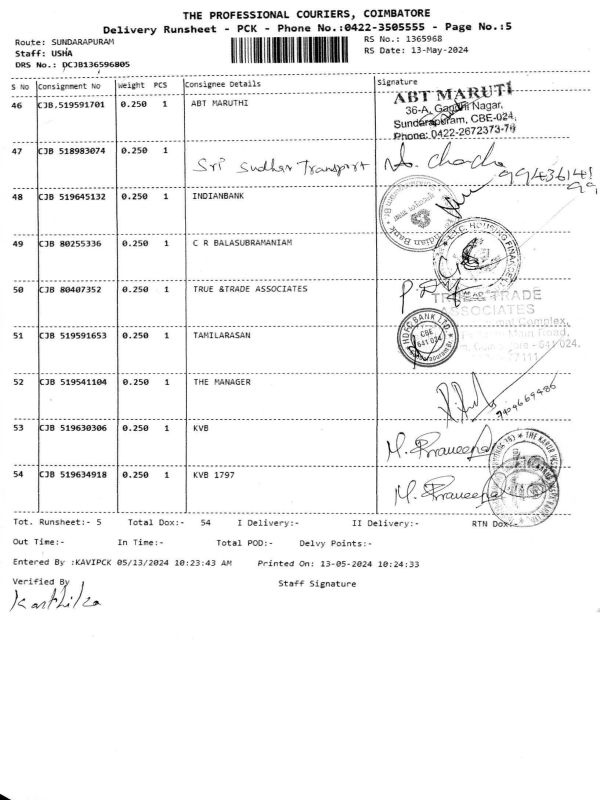 THE PROFESSIONAL COURIERS, COIMBATORE
Delivery Runsheet - PCK - Phone No.:0422-3505555 - Page No.:5
Route: SUNDARAPURAM
RS No.: 1365968
Staff: USHA
RS Date: 13-May-2024
DRS No.: DCJB136596805
S No Consignment No Weight PCS Consignee Details Signature
46 CJB.519591701 0.250 1 ABT MARUTHI
ABT MARUTI
36-A, Gandhi Nagar,
Sundarapuram, CBE-024,
Phone: 0422-2672373-74
47 CJB 518983074 0.250 1 Sri Sudhar Transport
48 CJB 519645132 0.250 1 INDIANBANK
Indian Bank
49 CJB 80255336 0.250 1 C R BALASUBRAMANIAM
L.I.C. HOUSING FINANCE
50 CJB 80407352 0.250 1 TRUE &TRADE ASSOCIATES
TRUE & TRADE
ASSOCIATES
Complex,
Main Road,
641 024.
51 CJB 519591653 0.250 1 TAMILARASAN
HDFC BANK LTD.
CBE
641 024
52 CJB 519541104 0.250 1 THE MANAGER
53 CJB 519630306 0.250 1 KVB
M. Praveena
54 CJB 519634918 0.250 1 KVB 1797
M. Praveena
Tot. Runsheet:- 5 Total Dox:- 54 I Delivery:- II Delivery:- RTN Dox:-
Out Time:- In Time:- Total POD:- Delvy Points:-
Entered By :KAVIPCK 05/13/2024 10:23:43 AM Printed On: 13-05-2024 10:24:33
Verified By
Staff Signature
Karthika